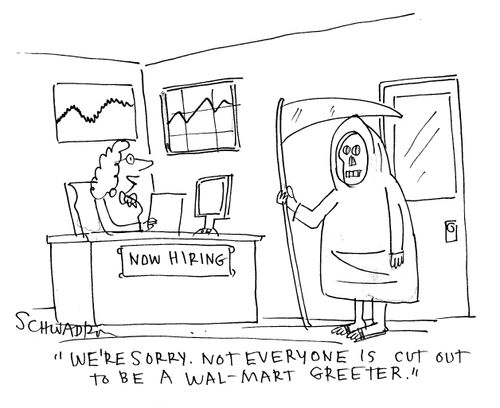 NOW HIRING
SCHWADRN
"WE'RE SORRY. NOT EVERYONE IS CUT OUT
TO BE A WAL-MART GREETER."